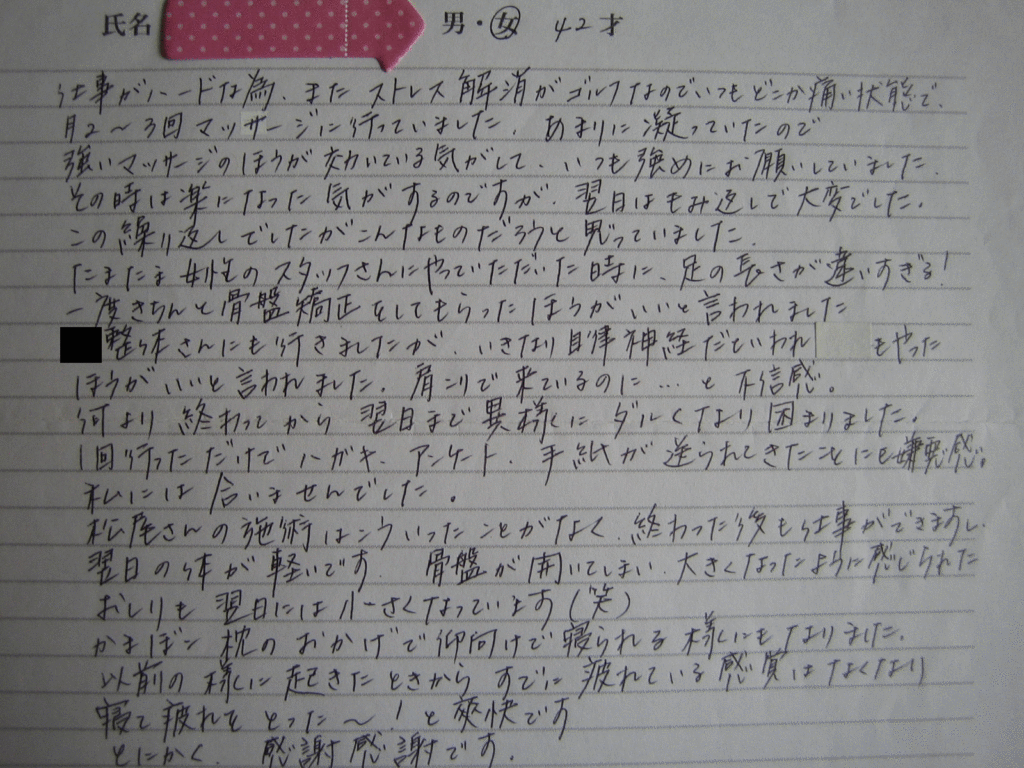 氏名 男・女 42才
仕事がハードな為、また ストレス解消がゴルフなのでいつもどこか痛い状態で、
月2〜3回マッサージに行っていました。あまりに凝っていたので
強いマッサージのほうが効いている気がして、いつも強めにお願いしていました。
その時は楽になった気がするのですが、翌日はもみ返しで大変でした。
この繰り返しでしたがこんなものだろうと思っていました。
たまたま女性のスタッフさんにやっていただいた時に、足の長さが違いすぎる!
一度きちんと骨盤矯正をしてもらったほうがいいと言われました
整体さんにも行きましたが、いきなり自律神経だといわれ もやった
ほうがいいと言われました。肩こりで来ているのに…と不信感。
何より終わってから翌日まで異様にダルくなり困まりました。
1回行っただけでハガキ、アンケート、手紙が送られてきたことにも嫌悪感。
私には合いませんでした。
松尾さんの施術はこういったことがなく、終わった後も仕事ができますし、
翌日の体が軽いです。骨盤が開いてしまい、大きくなったように感じられた
おしりも翌日には小さくなっています(笑)
かまぼこ枕のおかげで仰向けで寝られる様にもなりました。
以前の様に起きたときからすでに疲れている感覚はなくなり
寝て疲れをとった〜!と爽快です
とにかく、感謝感謝です。